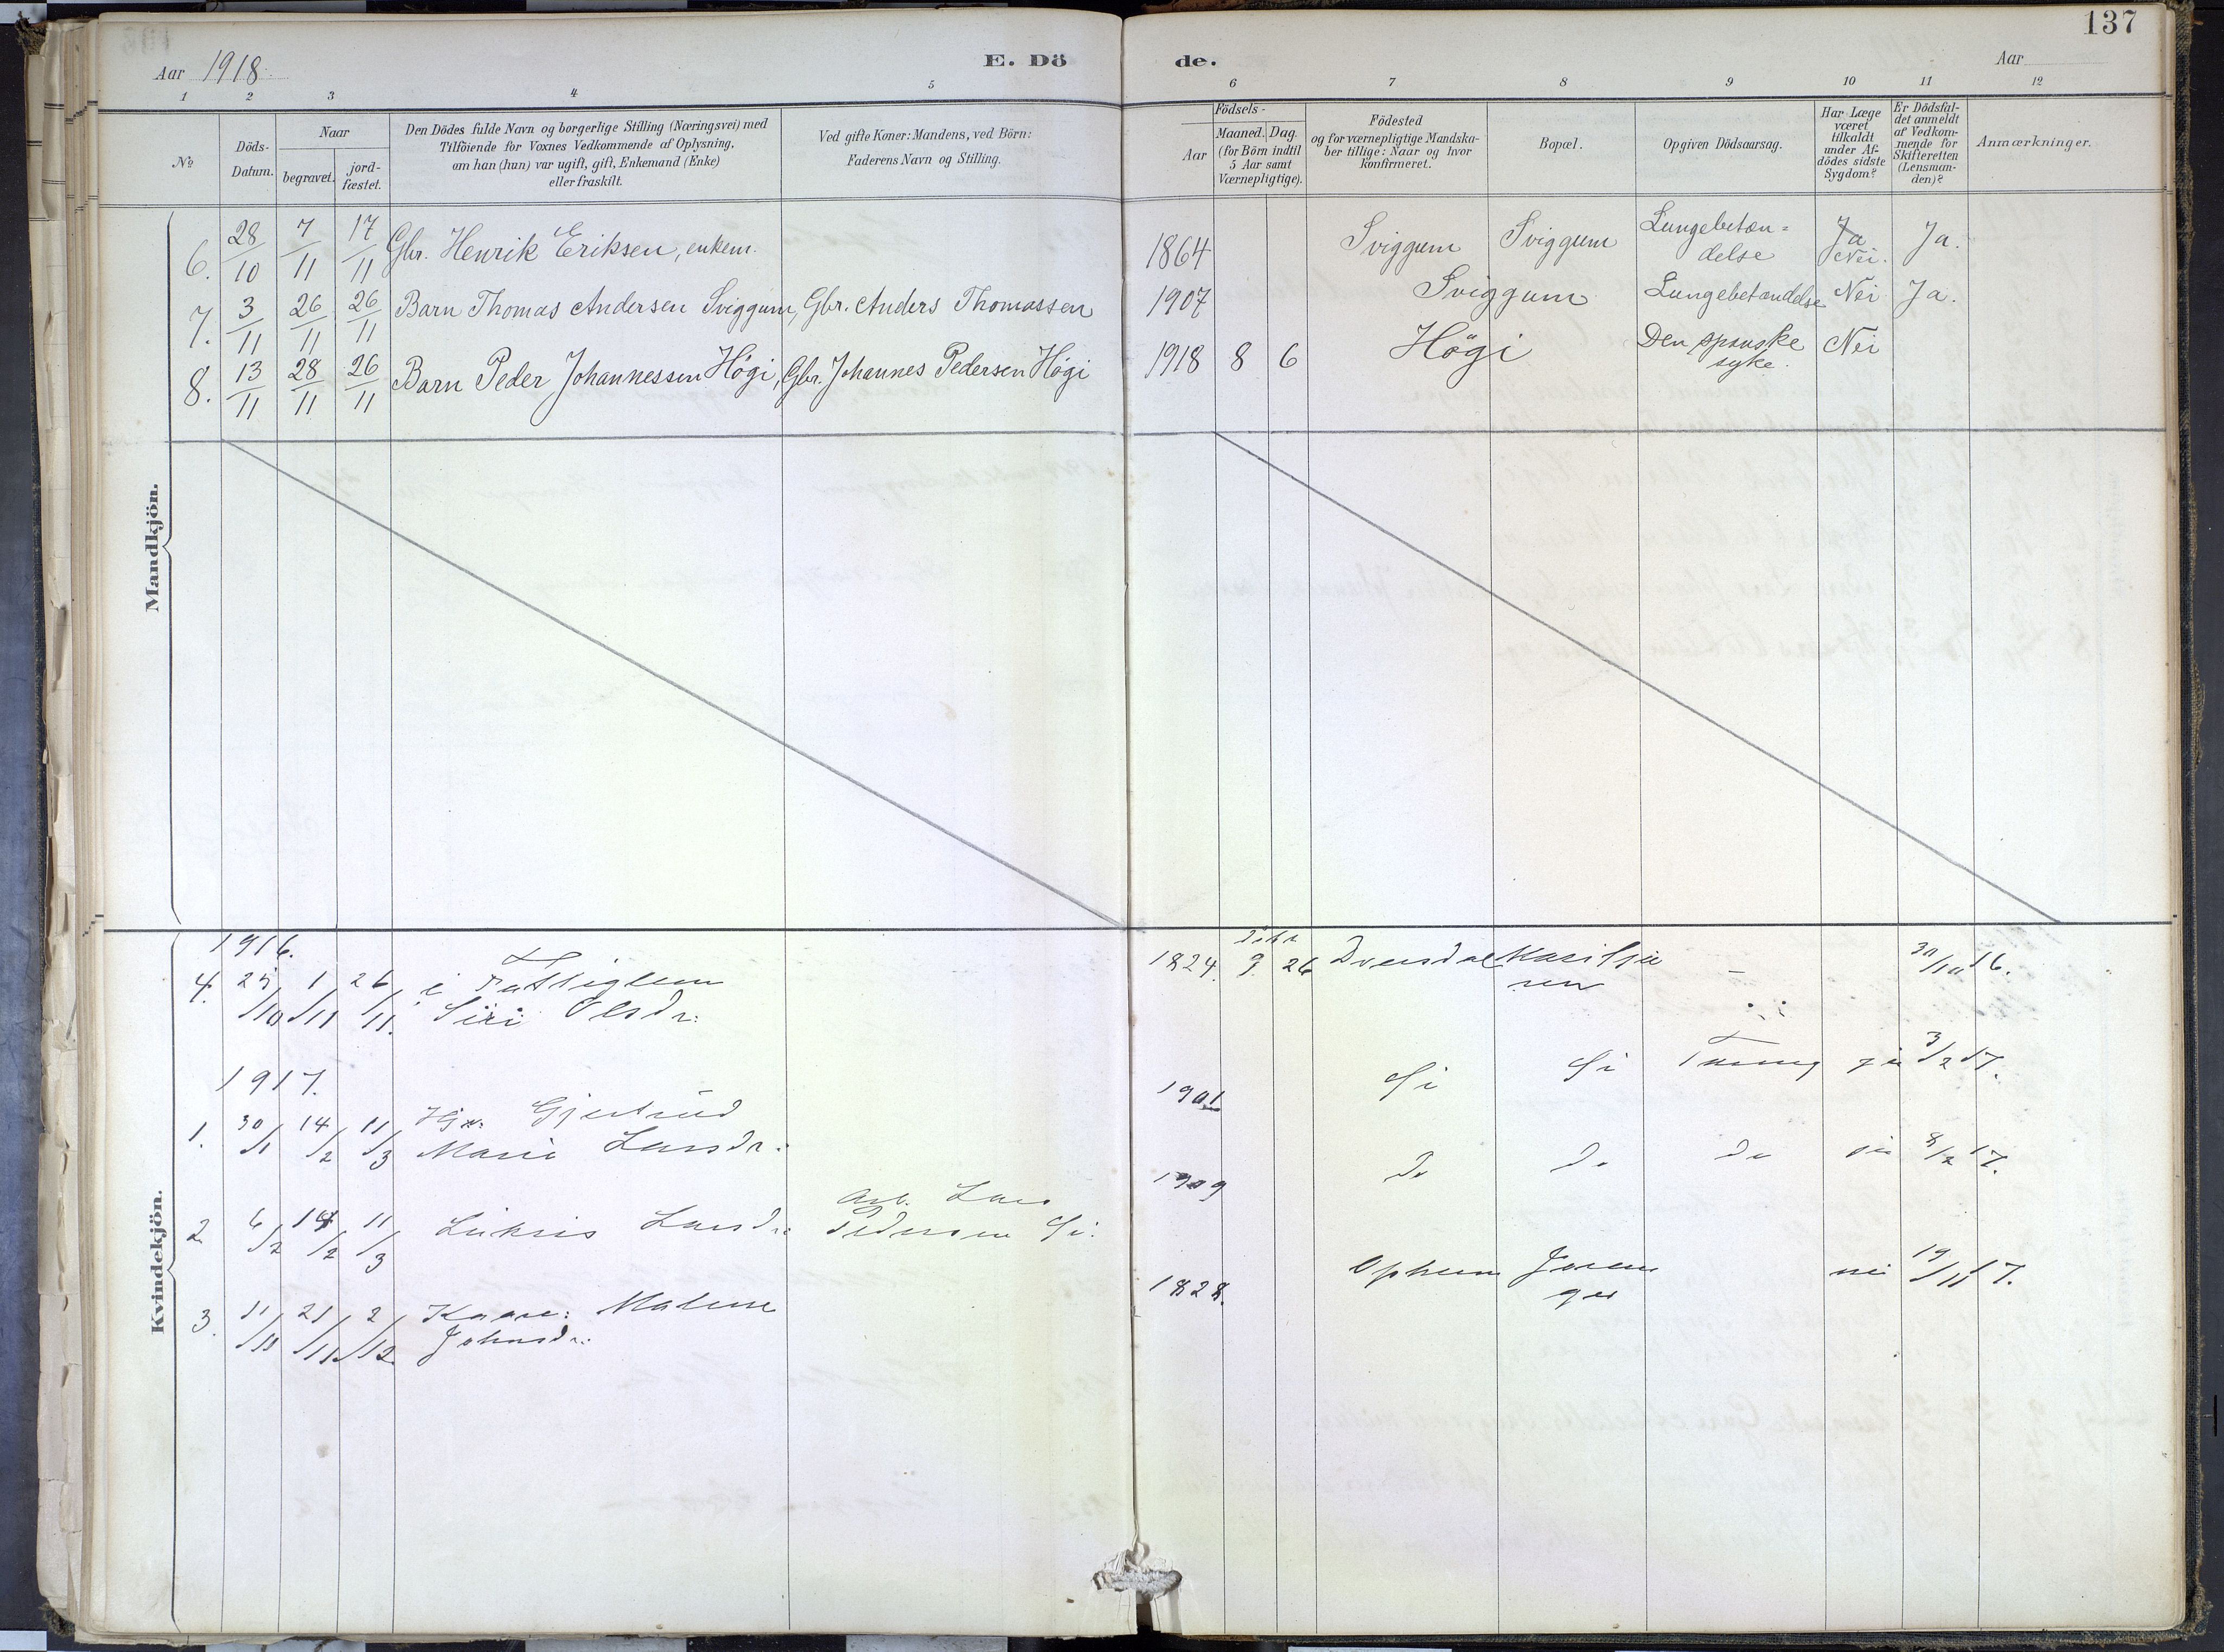 137
Aar 1918. E. Dö de. Aar
1 2 3 4 5 6 7 8 9 10 11 12
No
Döds-Datum.
Naar
begravet.
jord-fæstet.
Den Dödes fulde Navn og borgerlige Stilling (Næringsvei) med
Tilföiende for Voxnes Vedkommende af Oplysning,
om han (hun) var ugift, gift, Enkemand (Enke)
eller fraskilt.
Ved gifte Koner: Mandens, ved Börn:
Faderens Navn og Stilling.
Födsels-
Aar
Maaned. Dag.
(for Börn indtil
5 Aar samt
Værnepligtige).
Födested
og for værnepligtige Mandska-
ber tillige: Naar og hvor
konfirmeret.
Bopæl.
Opgiven Dödsaarsag.
Har Læge
været
tilkaldt
under Af-
dödes sidste
Sygdom?
Er Dödsfal-
det anmeldt
af Vedkom-
mende for
Skifteretten
(Lensman-
den)?
Anmærkninger.
Mandkjön.
6. 28/10 7/11 17/11 Gbr. Henrik Eriksen, enkem. 1864 Sviggum Sviggum Lungebetæn=
delse Ja Nei. Ja.
7. 3/11 26/11 26/11 Barn Thomas Andersen Sviggum, Gbr. Anders Thomassen 1907 Sviggum Lungebetændelse Nei Ja.
8. 13/11 28/11 26/11 Barn Peder Johannessen Högi, Gbr. Johannes Pedersen Högi 1918 8 6 Högi Den spanske
syke. Nei
Kvindekjön.
1916.
4. 25/10 1/11 26/11. Fattiglem
Siri Olsdr: 1824. 9. 26
1917.
1. 30/1 14/2 11/3 Gjertrud
Marie Larsdr: 1901 3/2 17.
2 6/2 14/2 11/3 Larsdr: Arb. Lars
Pedersen 1909 do do do 8/2 17.
3. 11/11 21/11 2/12. Malene
Johnsdr: 1828. Ophem nei 19/11 17.